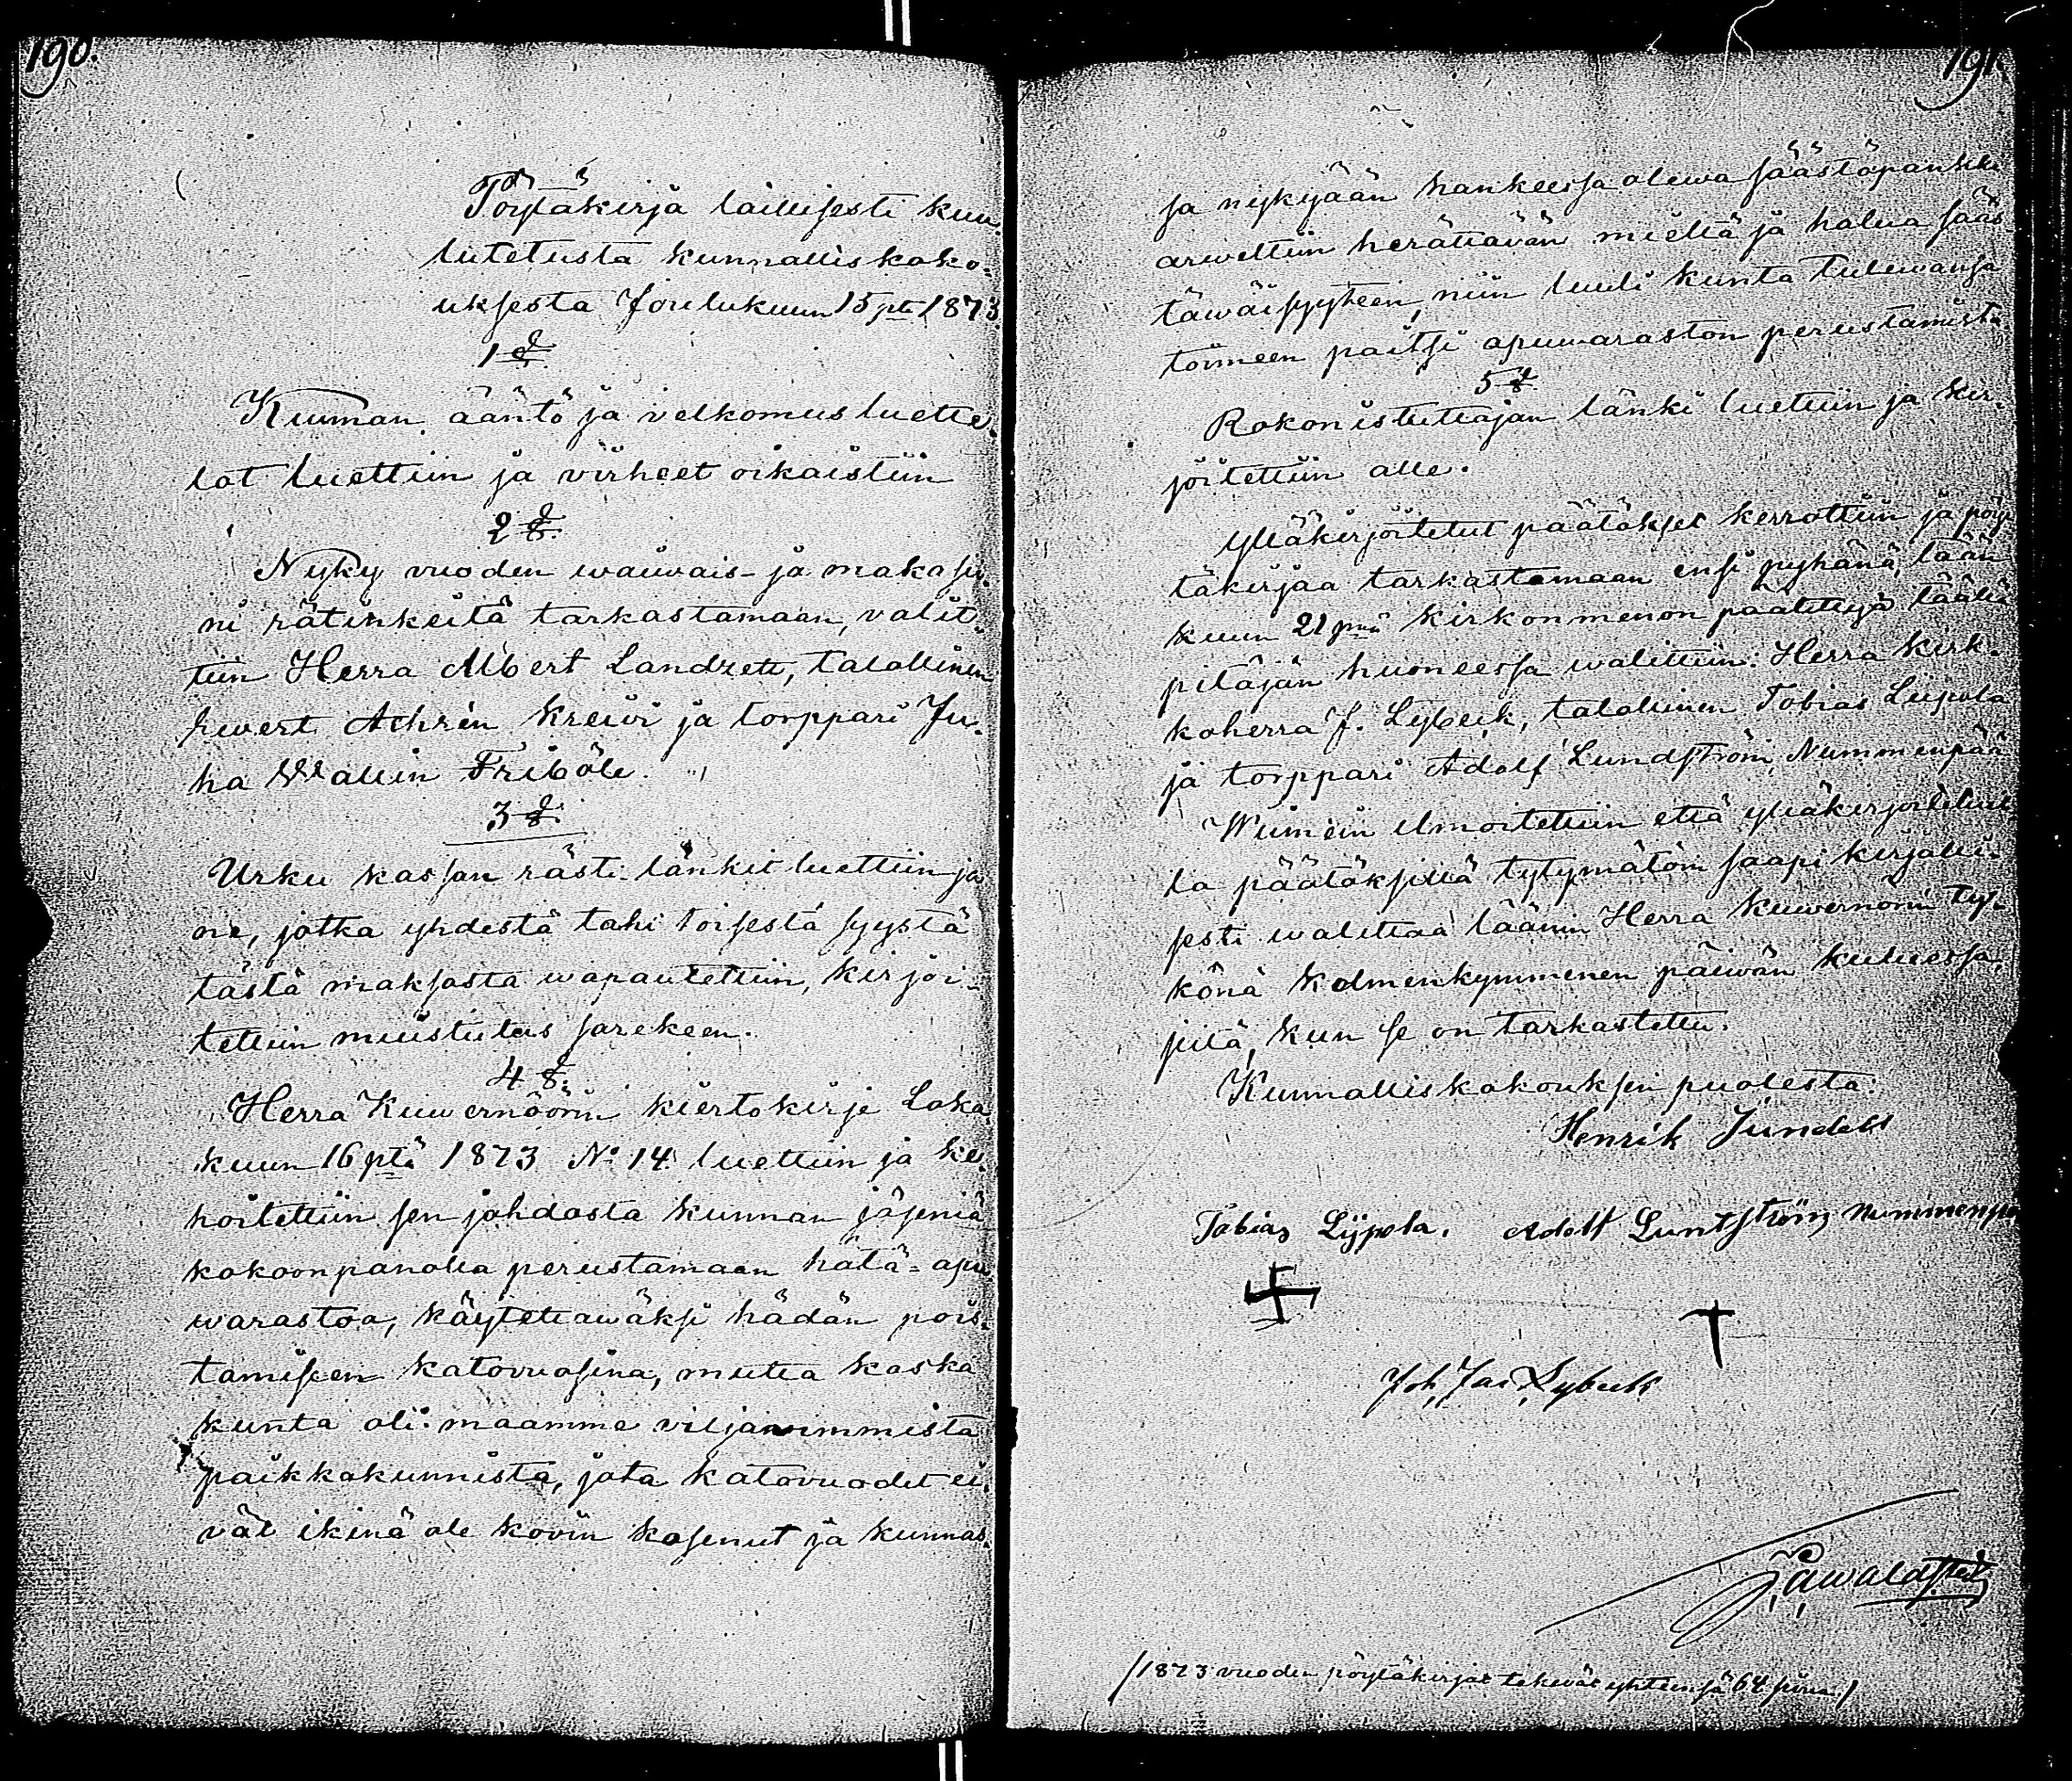 190.
Pöytäkirja laillisesti kuu-
lutetusta kunnalliskoko-
uksesta Joulukuun 15 ptä 1873.
1 §.
Kunnan ääntö ja velkomus luette-
lot luettiin ja virheet oikaistiin
2 §.
Nyky vuoden waiwais- ja makasi-
ni rätinkeitä tarkastamaan, valit-
tiin Herra Albert Landzett, talollinen
Ewert Achrén Kreiwi ja torppari Ju-
ha Wallin Friböle.
3 §.
Urku kassan rästi länkit luettiin ja
ne, jotka yhdestä tahi toisesta syystä
tästä maksosta wapautettiin, kirjoi-
tettiin muistutus sarekeen.
4 §.
Herra Kuwernöörin kiertokirje Loka-
kuun 16 ptä 1873 No 14. luettiin ja ke-
hoitettiin sen johdosta kunnan jäseniä
kokoonpanolla perustamaan hätä-apu
warastoa, käytettawäksi hädän pois-
tamiseen katovuosina, mutta koska
kunta oli maamme viljawimmista
paikkakunnista, jota katovuodet ei-
vät ikinä ole kovin kosenut ja kunnas-
191.
sa nykyjään hankeessa olewa säästöpankki
arweltiin herättävän mieltä ja halua sääs
täwäisyyteen, niin luuli kunta tulewansa
toimeen paitsi apuwaraston perustamista.
5 §.
Rokonistuttajan länki luettiin ja kir-
joitettiin alle.
Ylläkirjoitetut päätökset kerrottiin ja pöy-
täkirjaa tarkastamaan ensi pyhänä, tään
kuun 21 pnä kirkonmenon päätettyä täällä
pitäjän huoneessa walittiin: Herra Kirk-
koherra J. Lybeck, talollinen Tobias Liipola
ja torppari Adolf Lundström Nummenpää
Wiimein ilmoitettiin että ylläkirjoitetui-
la päätöksillä tytymätöin saapi kirjalli-
sesti walittaa läänin Herra Kuwernörin ty-
könä kolmenkymmenen päiwän kuluessa,
siitä, kun se on tarkastettu.
Kunnalliskokouksen puolesta:
Henrik Jündell
Tobias Lijpola. Adolf Luntström Nummenpä
Joh. Jac. Lybeck
(1873 vuoden pöytäkirjat tekevät yhteensä 64 sivua)